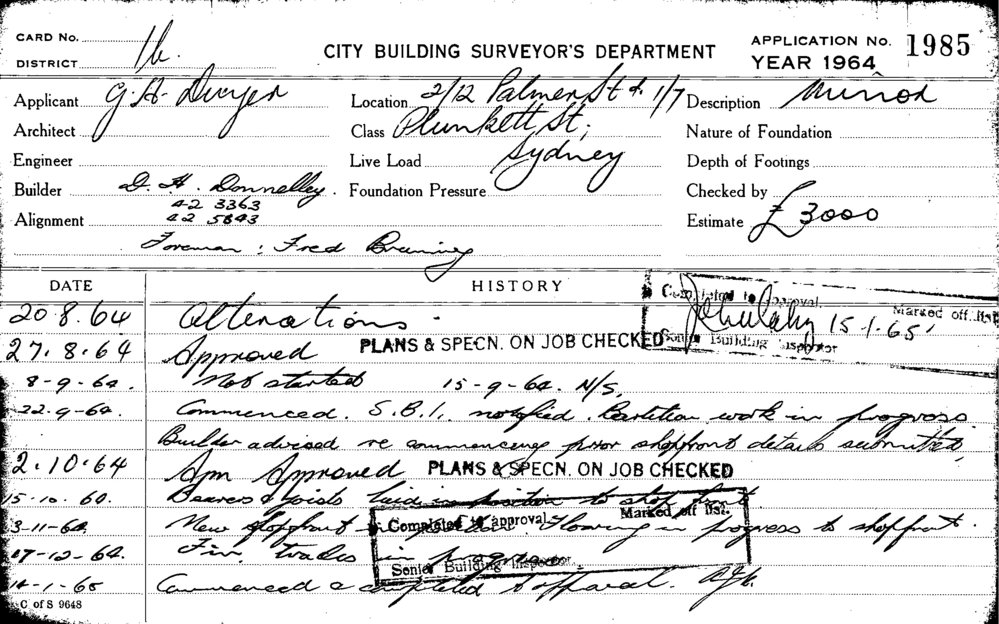 CARD No.
DISTRICT 16.
CITY BUILDING SURVEYOR'S DEPARTMENT
APPLICATION No. 1985
YEAR 1964
Applicant G. H. Dwyer
Location 2/12 Palmer St & 1/7
Description Minor
Architect
Class Plunkett St;
Nature of Foundation
Engineer
Live Load Sydney
Depth of Footings
Builder D. H. Donnelley.
Foundation Pressure
Checked by
42 3363
Alignment 42 5843
Estimate £3000
Foreman: Fred
DATE
HISTORY
Completed to approval. Marked off list
15-1-65
Senior Building Inspector
20.8.64 Alterations.
27.8.64 Approved PLANS & SPECN. ON JOB CHECKED
8-9-64. Not started 15-9-64. N/S.
22.9-64. Commenced. S.B.I. notified. Partition work in progress
Builder advised re commencing prior shopfront details submitted,
2.10.64 Am Approved PLANS & SPECN. ON JOB CHECKED
15-10-64. Bearers & joists laid in position to shop front
3-11-64. New shopfront in Flooring in progress to shopfront.
17-12-64. Fin trades in progress
Completed to approval Marked off list.
Senior Building Inspector.
14-1-65 Commenced & completed to approval.
C of S 9648